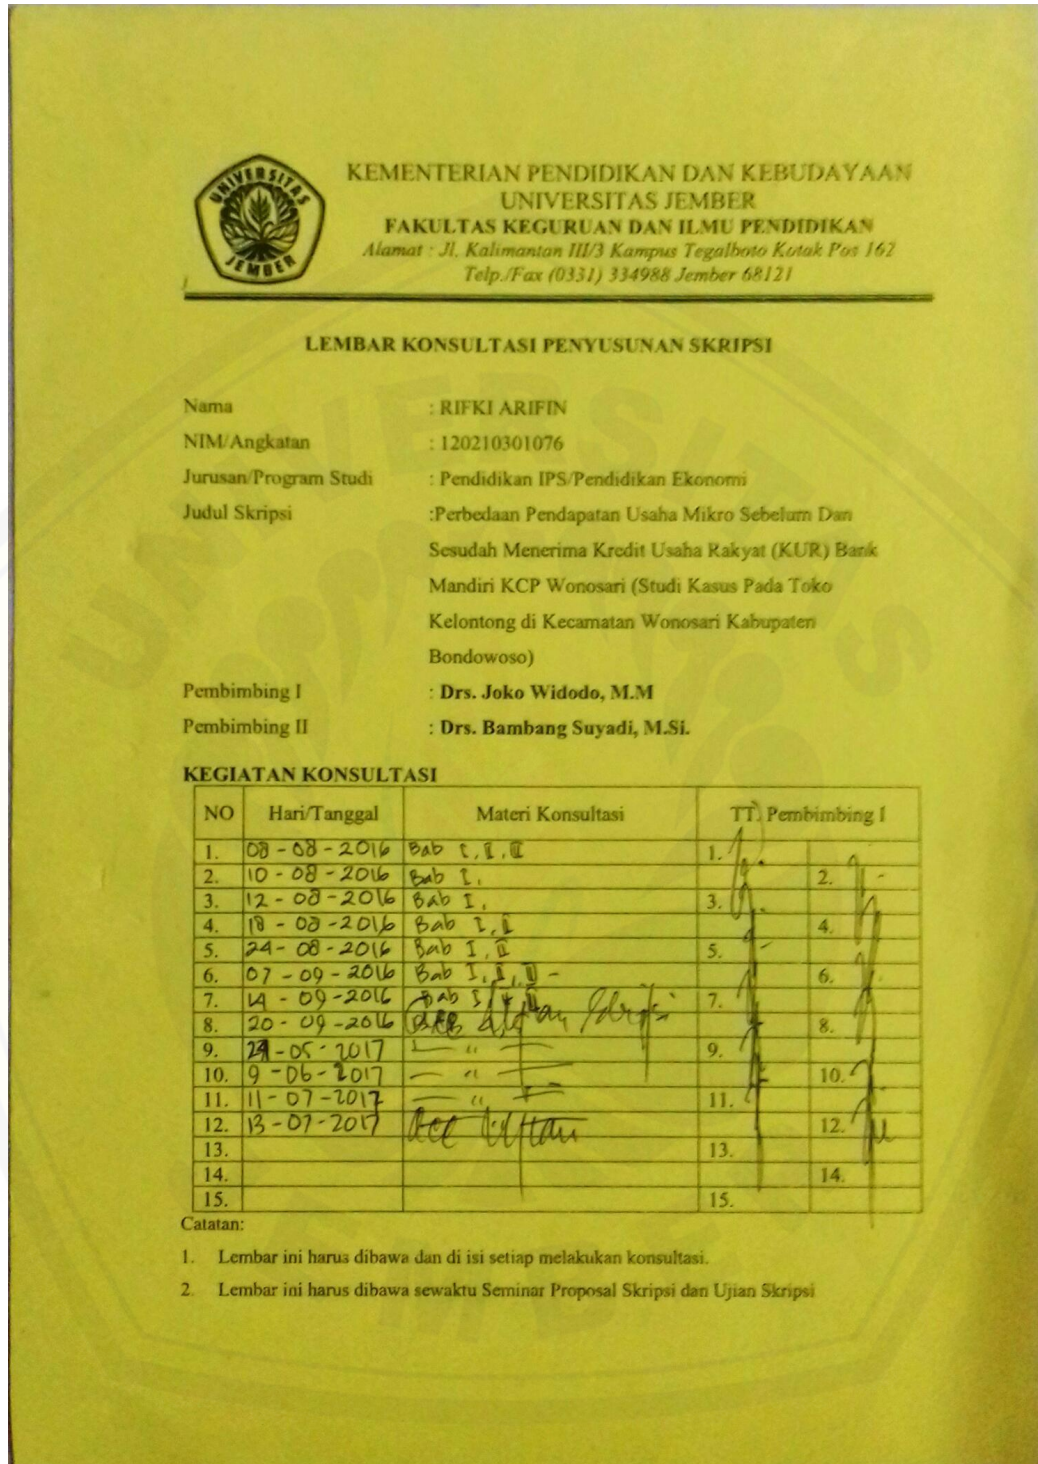 UNIVERSITAS
JEMBER
KEMENTERIAN PENDIDIKAN DAN KEBUDAYAAN
UNIVERSITAS JEMBER
FAKULTAS KEGURUAN DAN ILMU PENDIDIKAN
Alamat : Jl. Kalimantan III/3 Kampus Tegalboto Kotak Pos 162
Telp./Fax (0331) 334988 Jember 68121
LEMBAR KONSULTASI PENYUSUNAN SKRIPSI
Nama : RIFKI ARIFIN
NIM/Angkatan : 120210301076
Jurusan/Program Studi : Pendidikan IPS/Pendidikan Ekonomi
Judul Skripsi :Perbedaan Pendapatan Usaha Mikro Sebelum Dan
Sesudah Menerima Kredit Usaha Rakyat (KUR) Bank
Mandiri KCP Wonosari (Studi Kasus Pada Toko
Kelontong di Kecamatan Wonosari Kabupaten
Bondowoso)
Pembimbing I : Drs. Joko Widodo, M.M
Pembimbing II : Drs. Bambang Suyadi, M.Si.
KEGIATAN KONSULTASI
NO Hari/Tanggal Materi Konsultasi TT. Pembimbing I
1. 08-08-2016 Bab I, II, III 1.
2. 10-08-2016 Bab I, 2.
3. 12-08-2016 Bab I, 3.
4. 18-08-2016 Bab I, II 4.
5. 24-08-2016 Bab I, II 5.
6. 07-09-2016 Bab I, II, III - 6.
7. 14-09-2016 Bab I 7.
8. 20-09-2016 8.
9. -05-2017 — " — 9.
10. 9-06-2017 — " — 10.
11. 11-07-2017 — " — 11.
12. 13-07-2017 Acc 12.
13. 13.
14. 14.
15. 15.
Catatan:
1. Lembar ini harus dibawa dan di isi setiap melakukan konsultasi.
2. Lembar ini harus dibawa sewaktu Seminar Proposal Skripsi dan Ujian Skripsi